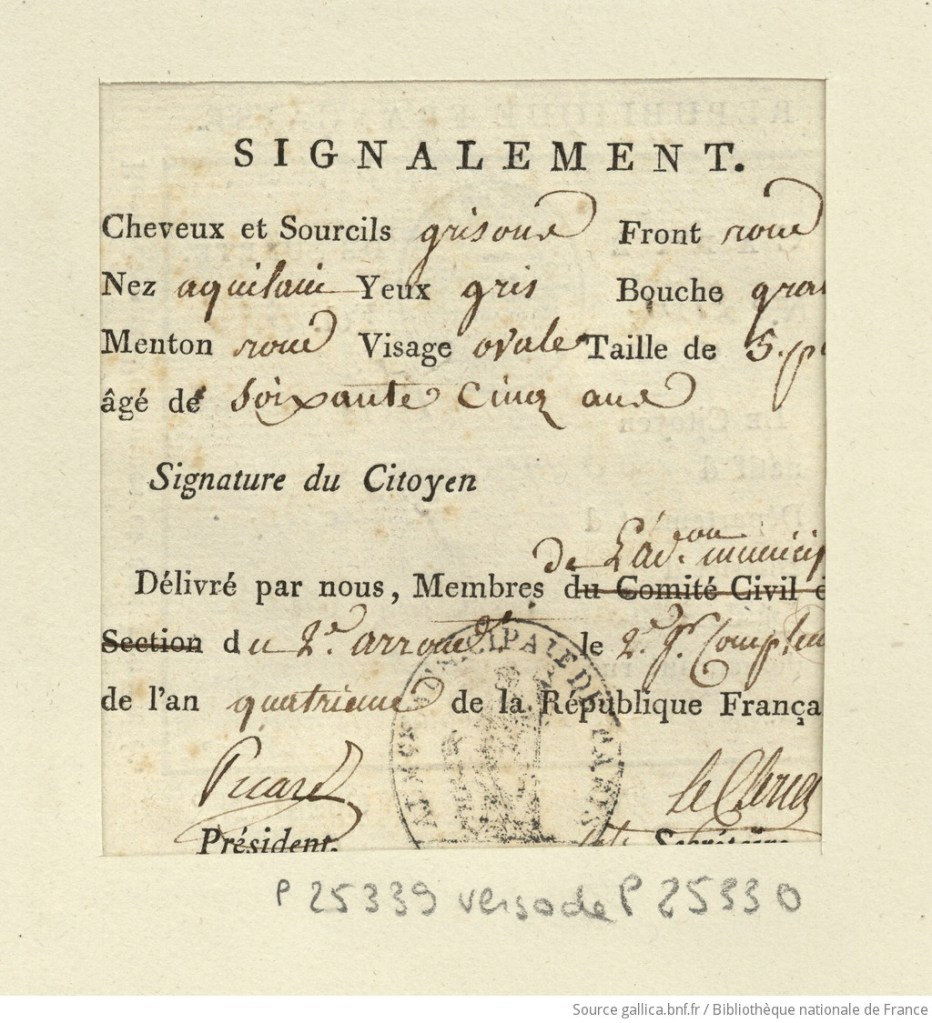 SIGNALEMENT.
Cheveux et Sourcils grisons Front rond
Nez aquilain Yeux gris Bouche gra
Menton rond Visage ovale Taille de 5. p
âgé de soixante cinq ans
Signature du Citoyen
de L'ad.on municip
Délivré par nous, Membres du Comité Civil d
Section du 2.e arrond.t le 2.e Jr. Complem
de l'an quatrieme de la République França
MUNICIPALE DE PARIS
Picard le Clerc
Président. Secrétaire
P 25339 verso de P 25330
Source gallica.bnf.fr / Bibliothèque nationale de France